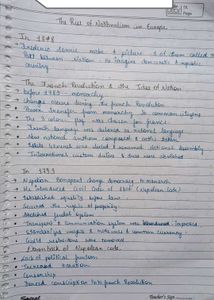 The Rise of Nationalism in Europe
In 1848
Frederic Sorrie make a picture of all them called a
Pact Between Nation. He imagine democratic & republic
country
The French Revolution & the Idea of Nation
before 1789 - monarchy
changes occurs during the french Revolution
Power transfer from monarchy to common citizens
The 3 colour flag was chosen in france
French language was declared as national language
New national anthem composed & oaths taken
Estate General was elected & renamed National Assembly
International custom duties & dues were abolished
In 1799
Napoleon Bonapart change democracy to monarch
He introduced Civil Code of 1804 (Napoleon Code)
Established equality before law
Secured the right of property
Abolished feudal system
Transport & communication system was improved
Standardized weights & measures & common currency
Guild restrictions were removed
Drawback of Napoleon code
Lack of political freedom
Increased taxation
Censorship
Forced conscription into french Revolution
Teacher's Sign